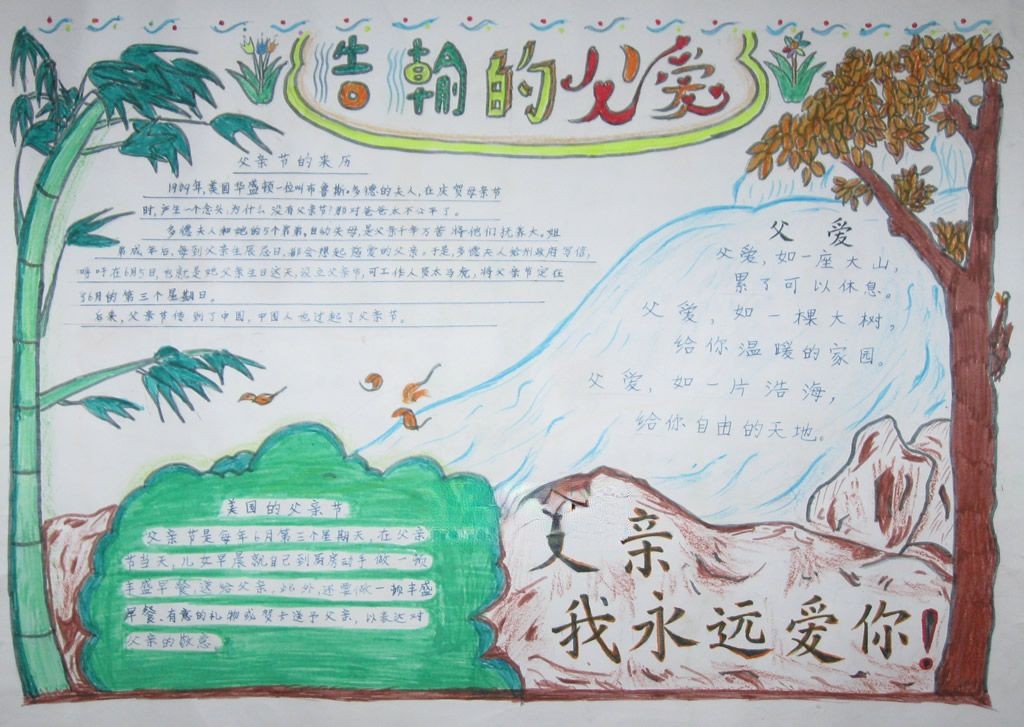 浩瀚的父爱
父亲节的来历
1909年,美国华盛顿一位叫布鲁斯·多德的夫人,在庆贺母亲节
时,产生一个念头,为什么没有父亲节?那对爸爸太不公平了。
多德夫人和她的5个弟弟,自幼失母,是父亲千辛万苦将他们抚养大。姐
弟成年后,每到父亲生辰忌日,都会想起慈爱的父亲。于是,多德夫人给州政府写信,
呼吁在6月5日,也就是她父亲生日这天,设立父亲节,可工作人员太马虎,将父亲节定在
了6月的第三个星期日。
后来,父亲节传到了中国,中国人也过起了父亲节。
父爱
父爱,如一座大山,
累了可以休息。
父爱,如一棵大树,
给你温暖的家园。
父爱,如一片浩海,
给你自由的天地。
美国的父亲节
父亲节是每年6月第三个星期天,在父亲
节当天,儿女早晨就自己到厨房动手做一顿
丰盛早餐送给父亲,此外,还要做一顿丰盛
早餐、有意的礼物或贺卡送予父亲,以表达对
父亲的敬意。
父亲
我永远爱你!